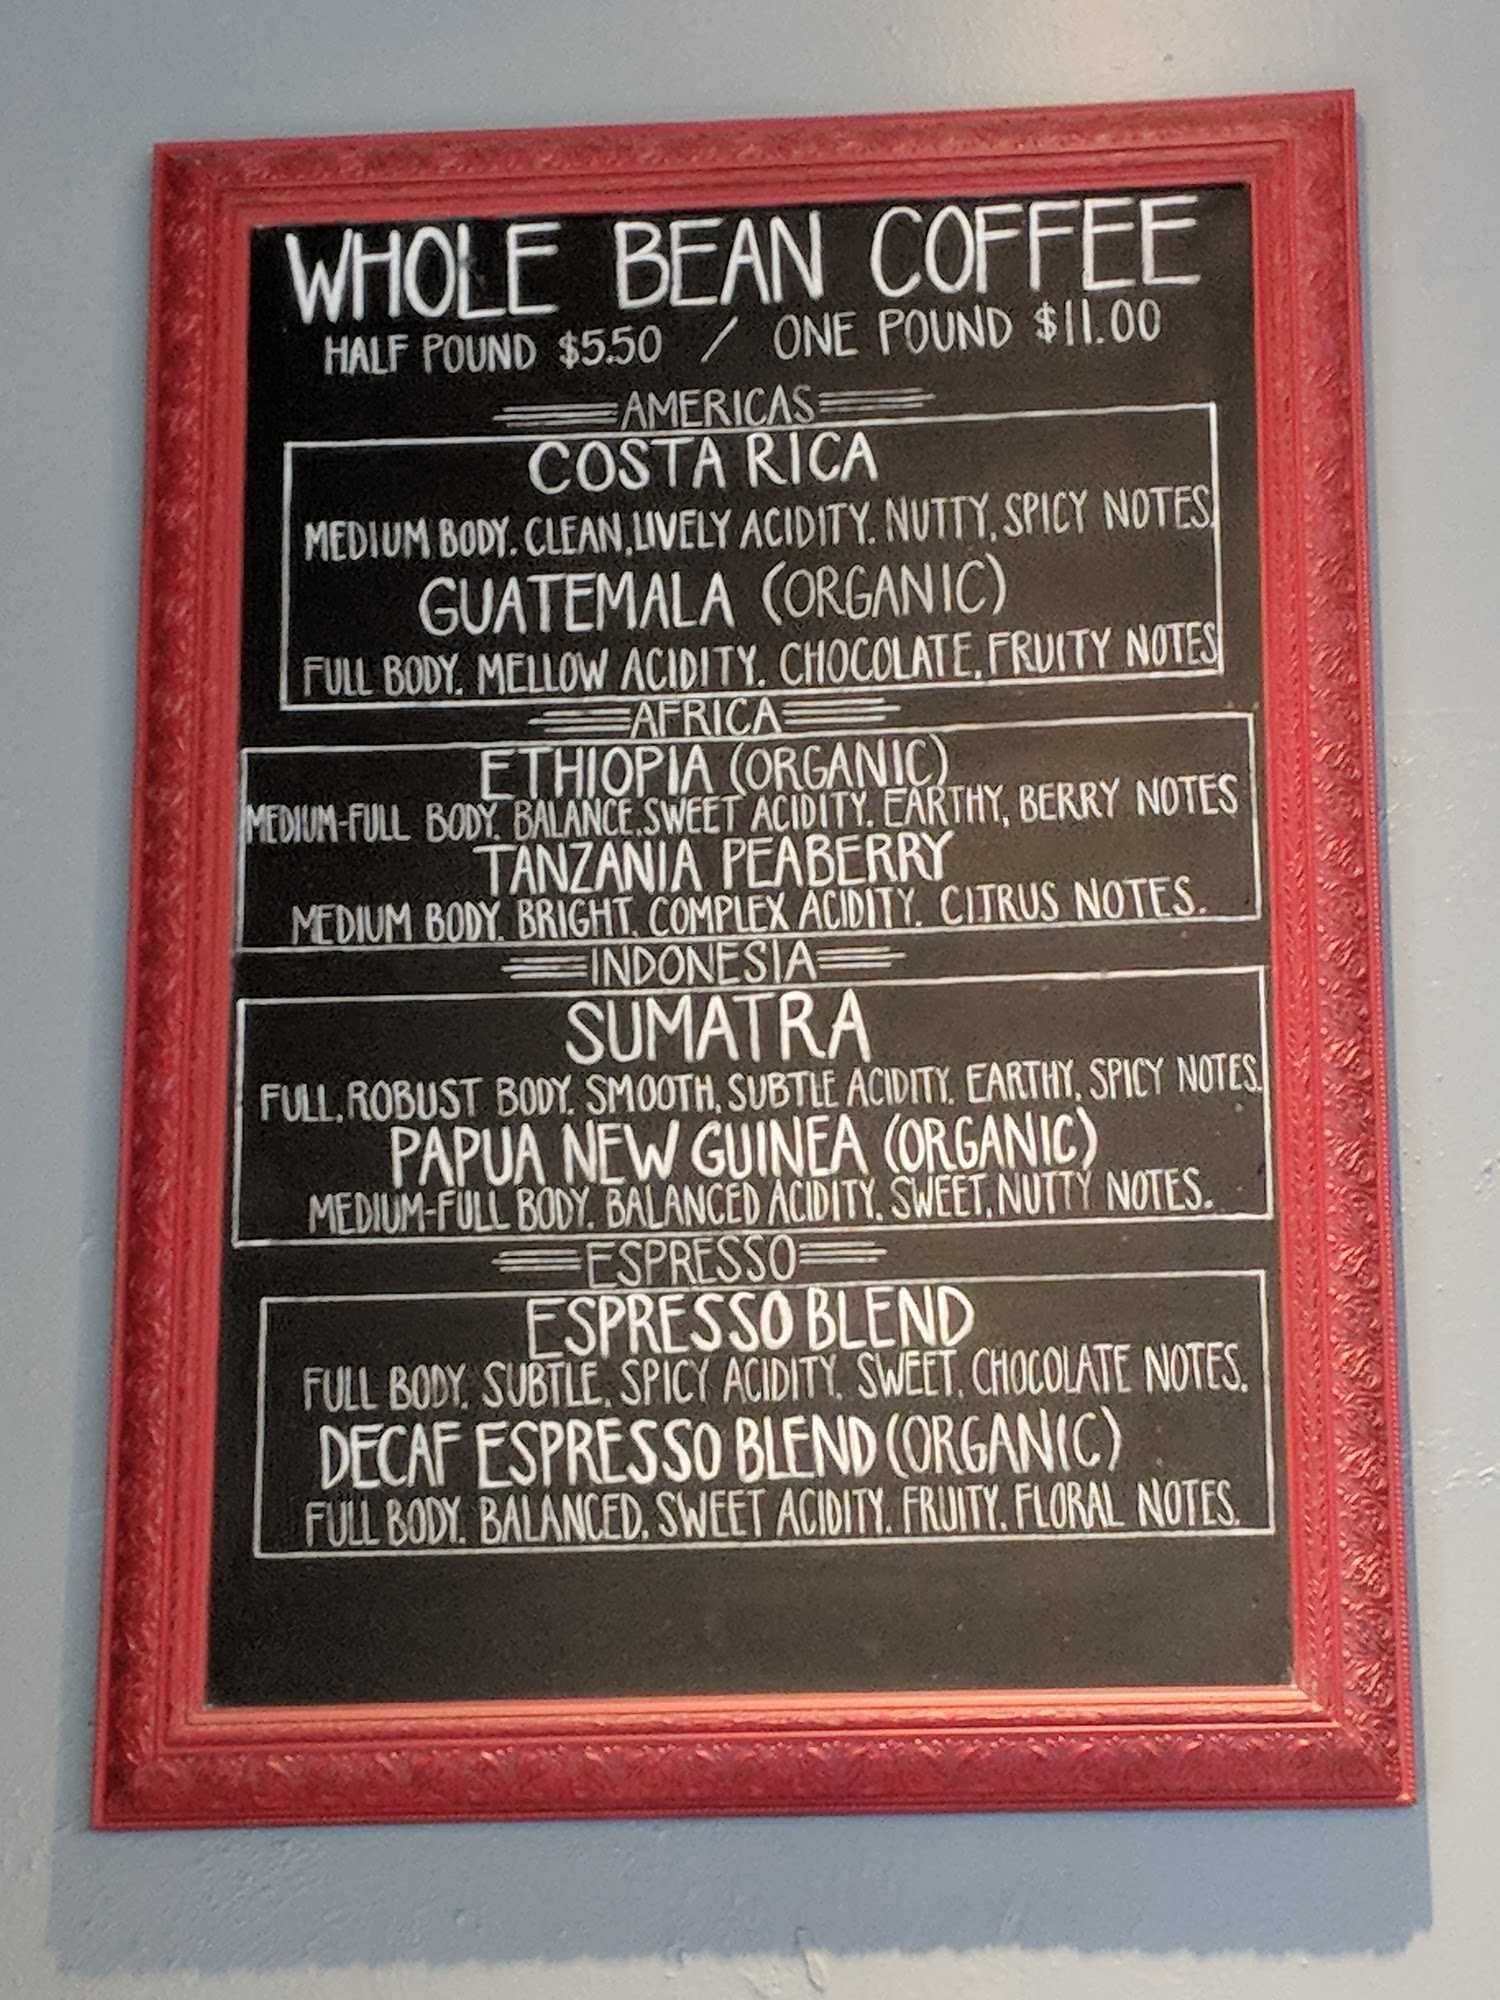 WHOLE BEAN COFFEE
HALF POUND $5.50 / ONE POUND $11.00
AMERICAS
COSTA RICA
MEDIUM BODY. CLEAN, LIVELY ACIDITY. NUTTY, SPICY NOTES.
GUATEMALA (ORGANIC)
FULL BODY. MELLOW ACIDITY. CHOCOLATE, FRUITY NOTES
AFRICA
ETHIOPIA (ORGANIC)
MEDIUM-FULL BODY. BALANCE, SWEET ACIDITY. EARTHY, BERRY NOTES
TANZANIA PEABERRY
MEDIUM BODY. BRIGHT, COMPLEX ACIDITY. CITRUS NOTES.
INDONESIA
SUMATRA
FULL, ROBUST BODY. SMOOTH, SUBTLE ACIDITY. EARTHY, SPICY NOTES.
PAPUA NEW GUINEA (ORGANIC)
MEDIUM-FULL BODY. BALANCED ACIDITY. SWEET, NUTTY NOTES.
ESPRESSO
ESPRESSO BLEND
FULL BODY. SUBTLE, SPICY ACIDITY. SWEET, CHOCOLATE NOTES.
DECAF ESPRESSO BLEND (ORGANIC)
FULL BODY. BALANCED, SWEET ACIDITY. FRUITY, FLORAL NOTES.